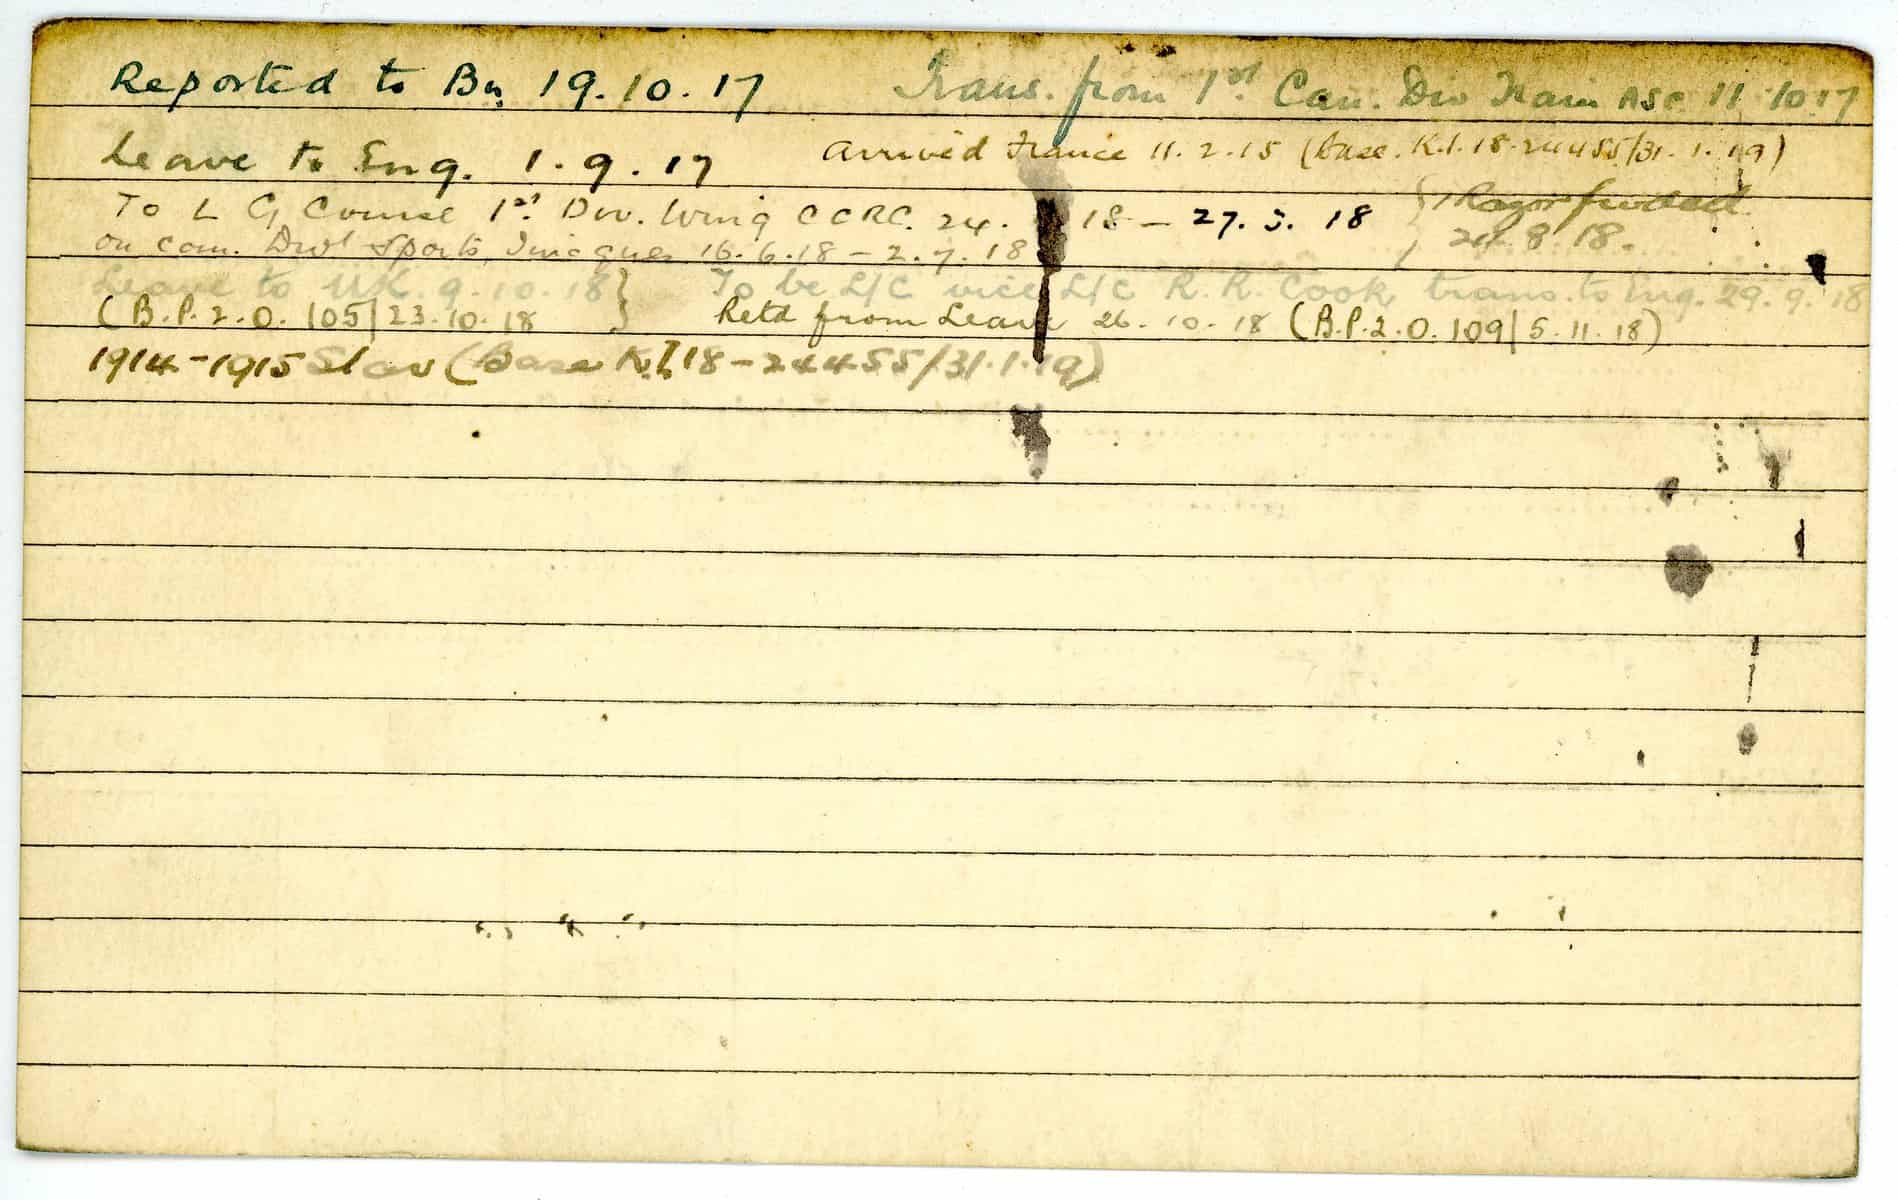 Reported to Bn. 19.10.17 Trans. from 1st Can. Div Train ASC 11.10.17
Leave to Eng. 1.9.17 Arrived France 11.2.15 (Base. K.I. 18-24455/31.1.19)
To L G Course 1st Div. Wing CCRC. 24. 18 – 27.5.18 } 1 Razor
on com. Divl Sports, 16.6.18 – 2.7.18 8.18.
Leave to U.K. 9.10.18 } To be L/C vice L/C R.R. Cook, trans. to Eng. 29.9.18
(B.P.2.O. 105/23.10.18 } Retd from Leave 26.10.18 (B.P.2.O. 109/5.11.18)
1914-1915 Star (Base K.I. 18-24455/31.1.19)